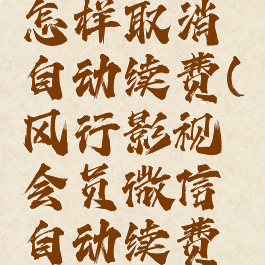 怎样取消
自动续费(
风行影视
会员微信
自动续费